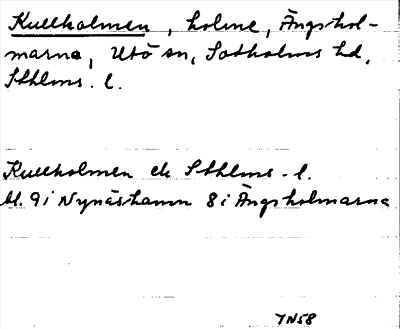 Kullholmen, holme, Ängshol-
marna, Utö sn, Sotholms hd,
Sthlms. l.
Kullholmen ek Sthlms-l.
bl. 9 i Nynäshamn 8 i Ängsholmarna
JN58